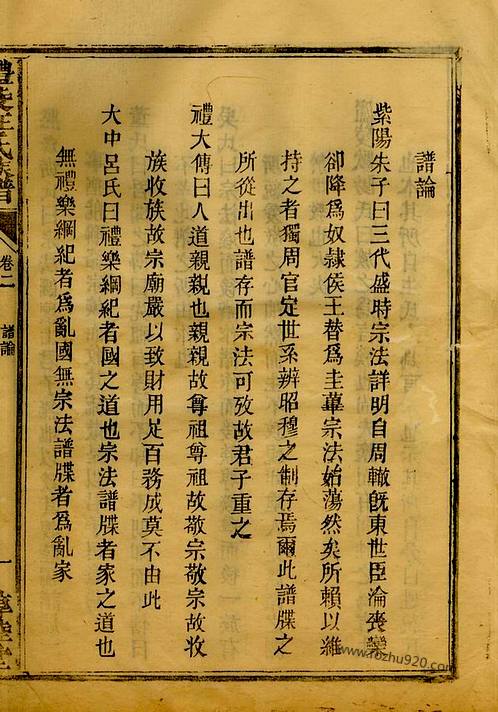 譜論
紫陽朱子曰三代盛時宗法詳明自周轍旣東世臣淪喪欒
卻降爲奴隸侯王替爲圭蓽宗法始蕩然矣所賴以維
持之者獨周官定世系辨昭穆之制存焉爾此譜牒之
所從出也譜存而宗法可攷故君子重之
禮大傳曰人道親親也親親故尊祖尊祖故敬宗敬宗故收
族收族故宗廟嚴以致財用足百務成莫不由此
大中呂氏曰禮樂綱紀者國之道也宗法譜牒者家之道也
無禮樂綱紀者爲亂國無宗法譜牒者爲亂家
氏族譜
卷二
譜論
一
www.fozhu920.com